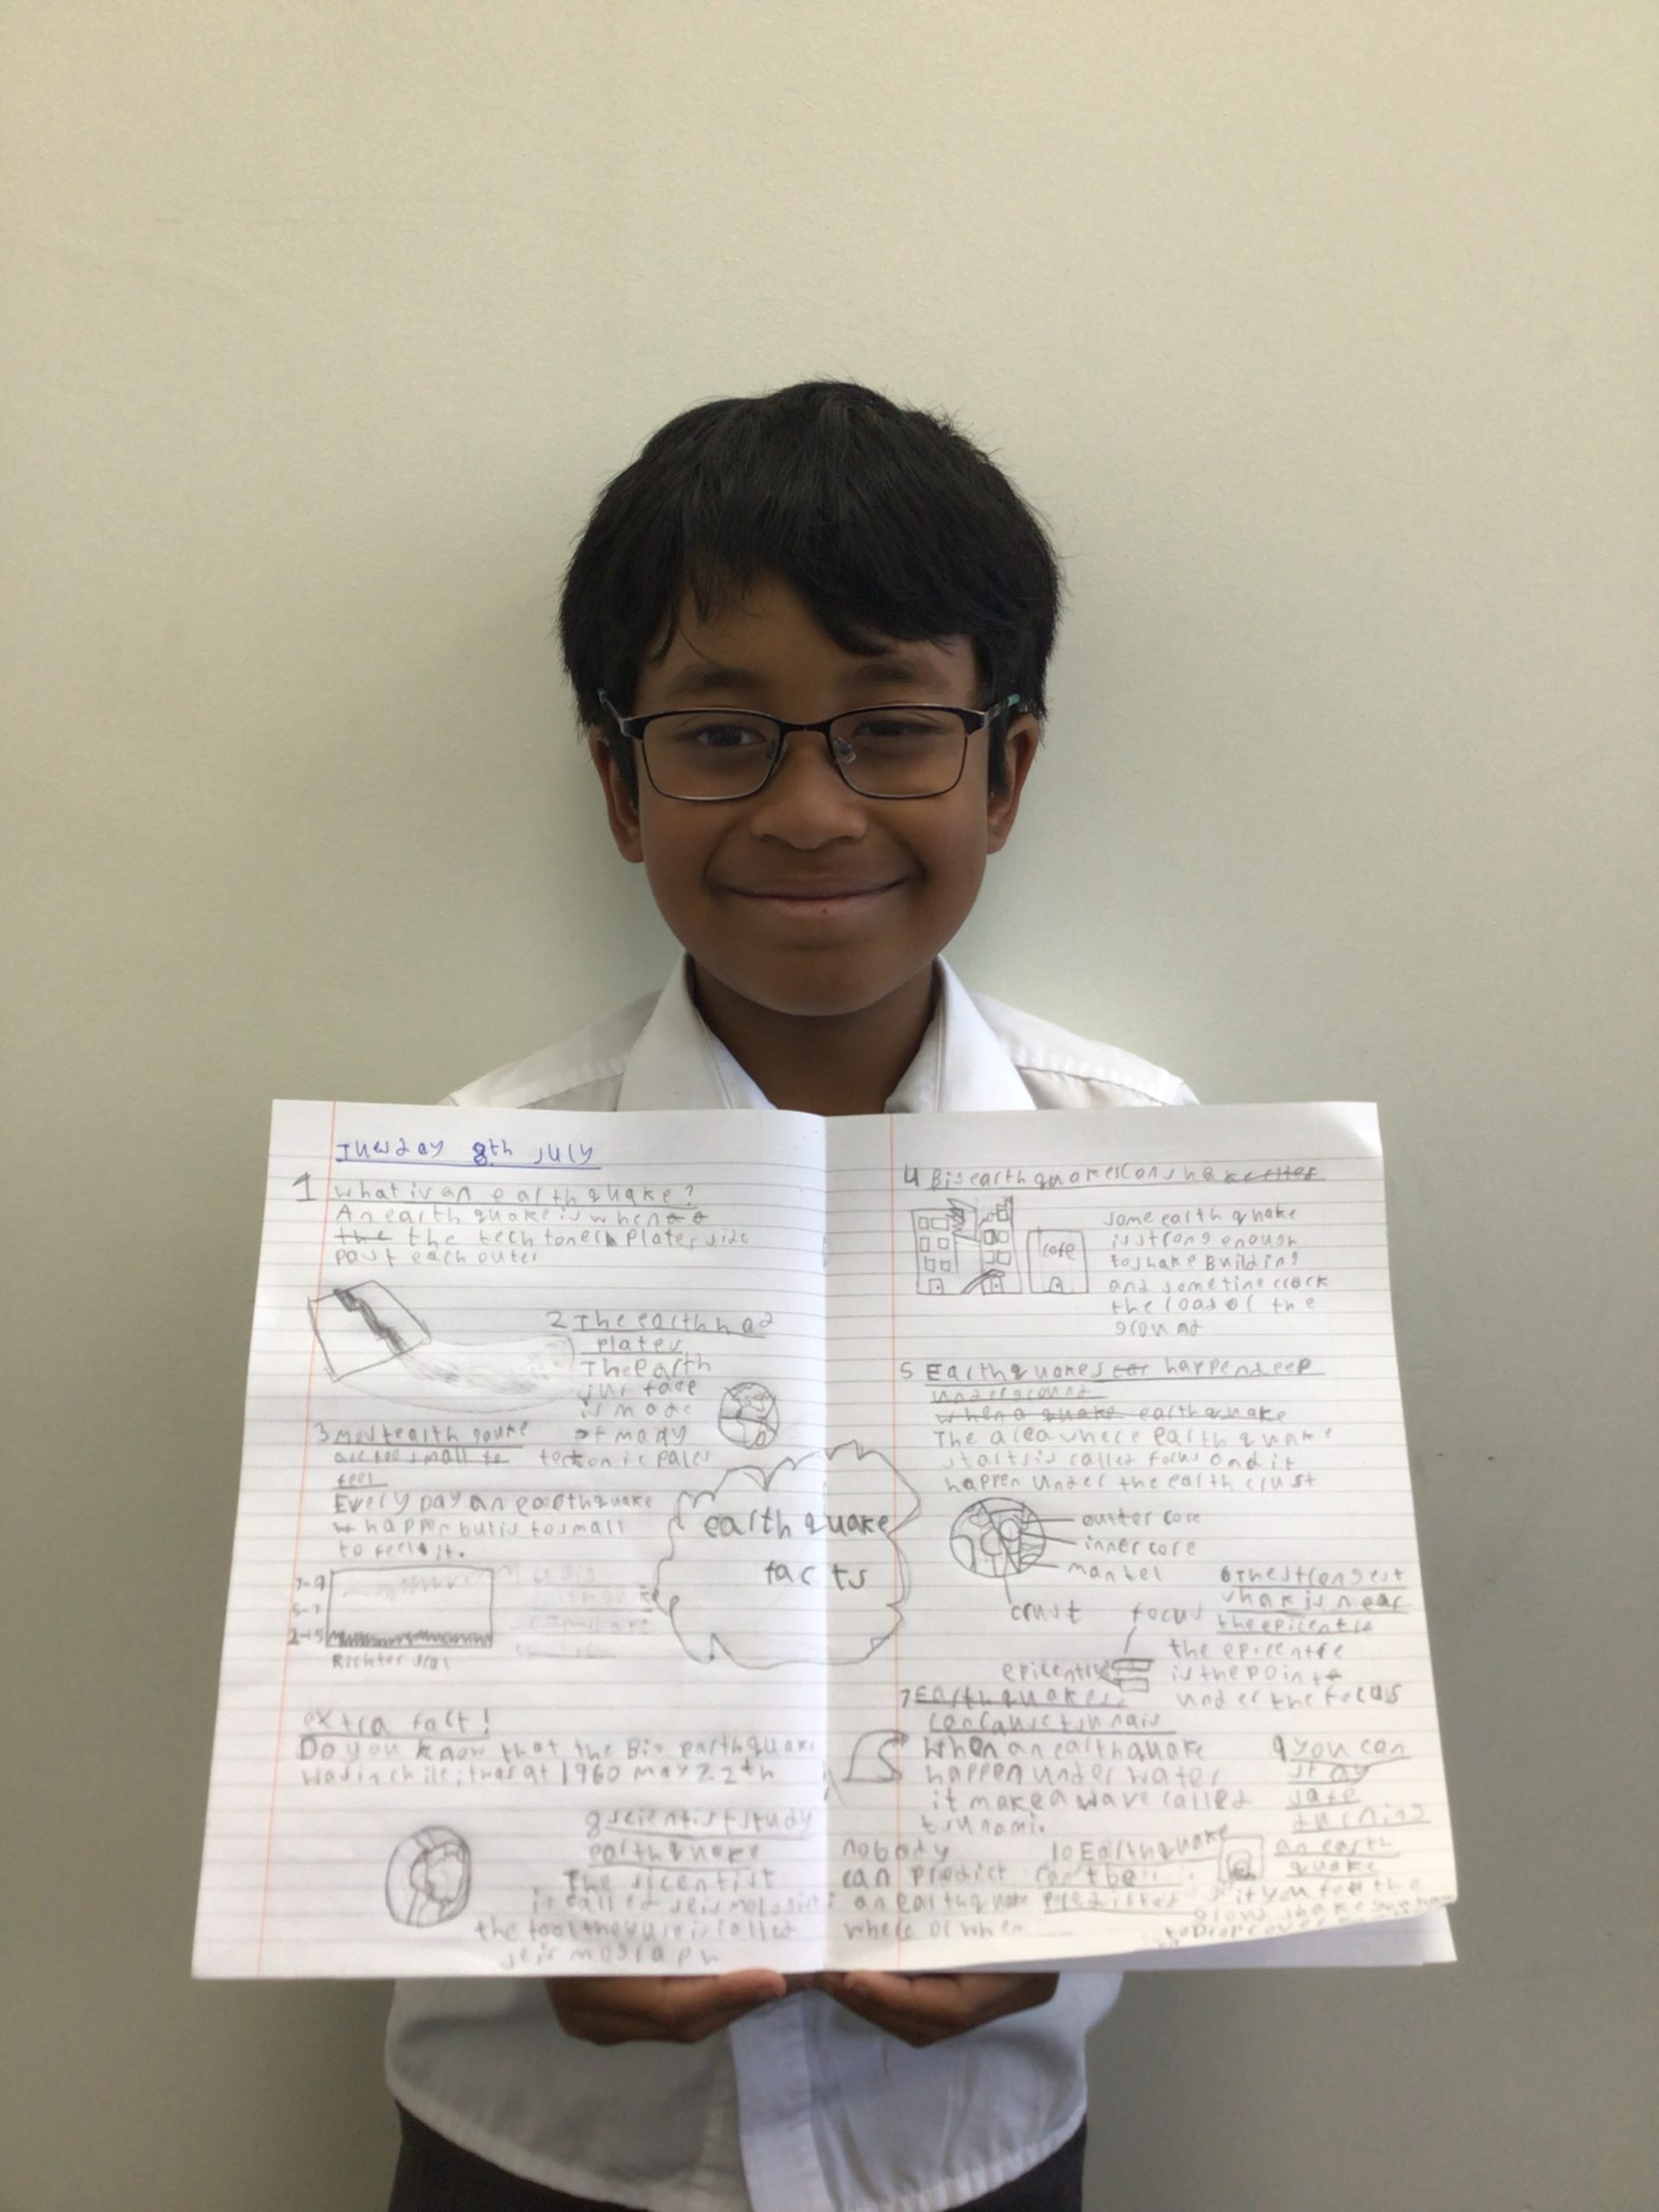 Tuesday 8th July
1 what is an earth quake?
An earth quake is when
the the tech tonech plates side
past each outer
2 The earth had
plates
The earth
sur face
is made
of mady
tectonic pales
3 most earth quake
are too small to
feel
Every pay an eaothquake
happen but is to small
to feel it.
7-9
5-7
2-5
Richter scal
earth quake
facts
extra fact!
Do you know that the Big earthquake
was in chile it was at 1960 may 22th
8 scientist study
earthquake
The sicentist
is called seismologist
the tool they use is called
seismograph
4 Big earth quakes can shake cities
cafe
some earth quake
is strong enough
to shake Building
and sometime crack
the road or the
ground
5 Earthquakes happen deep
underground
when a quake earthquake
The area where earth quake
starts is called focus and it
happen under the earth crust
outter core
inner core
mantel
crust
6 the strongest
shak is near
the epicentre
focus
epicentre
the epicentre
is the point
under the focus
7 Earthquakes
can cause tsunais
When an earthquake
happen under water
it make a wave called
tsunami.
9 you can
stay
safe
during
an earth
quake
if you feel the
to Drop cover
10 Earthquake
cant be
predicted
nobody
can predict
an earthquake
where or when